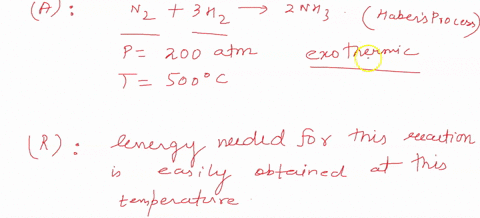 (A): N₂ + 3H₂ → 2NH₃. (Haber's Process)
P = 200 atm exothermic
T = 500°C
(R): Energy needed for this reaction
is easily obtained at this
temperature.